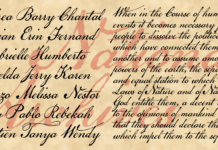 rea Barry Chantal
ian Erin Fernand
abrielle Humberto
elda Jerry Karen
nzo Melissa Nestor
o Pablo Rebekah
tien Tanya Wendy
When in the Course of human
events it becomes necessary
people to dissolve the political
which have connected them
another and to assume among
powers of the earth, the separate
and equal station to which
Laws of Nature and of Nature's
God entitle them, a decent
to the opinions of mankind
that they should declare the
which impel them to the sep